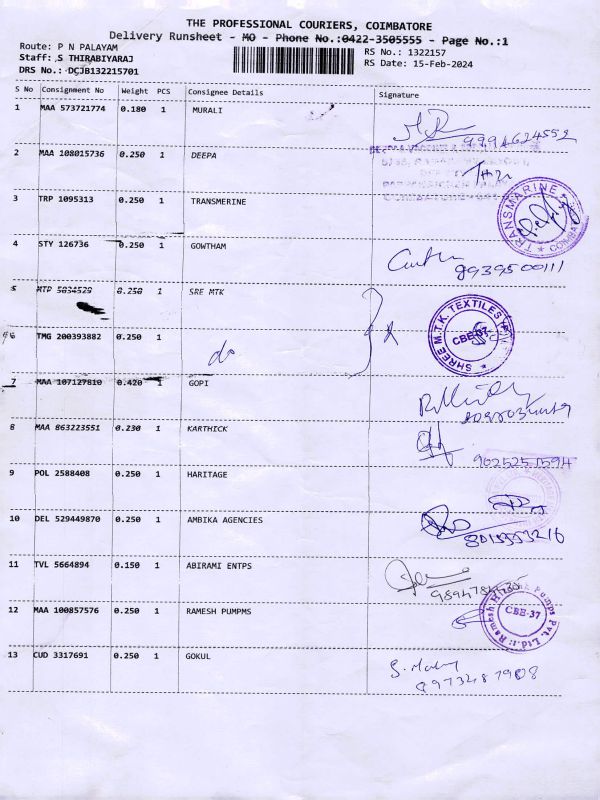 THE PROFESSIONAL COURIERS, COIMBATORE
Delivery Runsheet - MO - Phone No.:0422-3505555 - Page No.:1
Route: P N PALAYAM
RS No.: 1322157
Staff: S THIRABIYARAJ
RS Date: 15-Feb-2024
DRS No.: DCJB132215701
S No Consignment No Weight PCS Consignee Details Signature
1 MAA 573721774 0.180 1 MURALI
9994624552
2 MAA 108015736 0.250 1 DEEPA
3 TRP 1095313 0.250 1 TRANSMERINE
TRANSMARINE
4 STY 126736 0.250 1 GOWTHAM
8939500111
5 MTP 5034529 0.250 1 SRE MTK
SHREE M.T.K. TEXTILES
CBE-37
6 TMG 200393882 0.250 1 do
7 MAA 107127810 0.420 1 GOPI
8 MAA 863223551 0.230 1 KARTHICK
9025251594
9 POL 2588408 0.250 1 HARITAGE
10 DEL 529449870 0.250 1 AMBIKA AGENCIES
11 TVL 5664894 0.150 1 ABIRAMI ENTPS
12 MAA 100857576 0.250 1 RAMESH PUMPMS
Ramesh Pumps Pvt. Ltd.
CBE-37
13 CUD 3317691 0.250 1 GOKUL